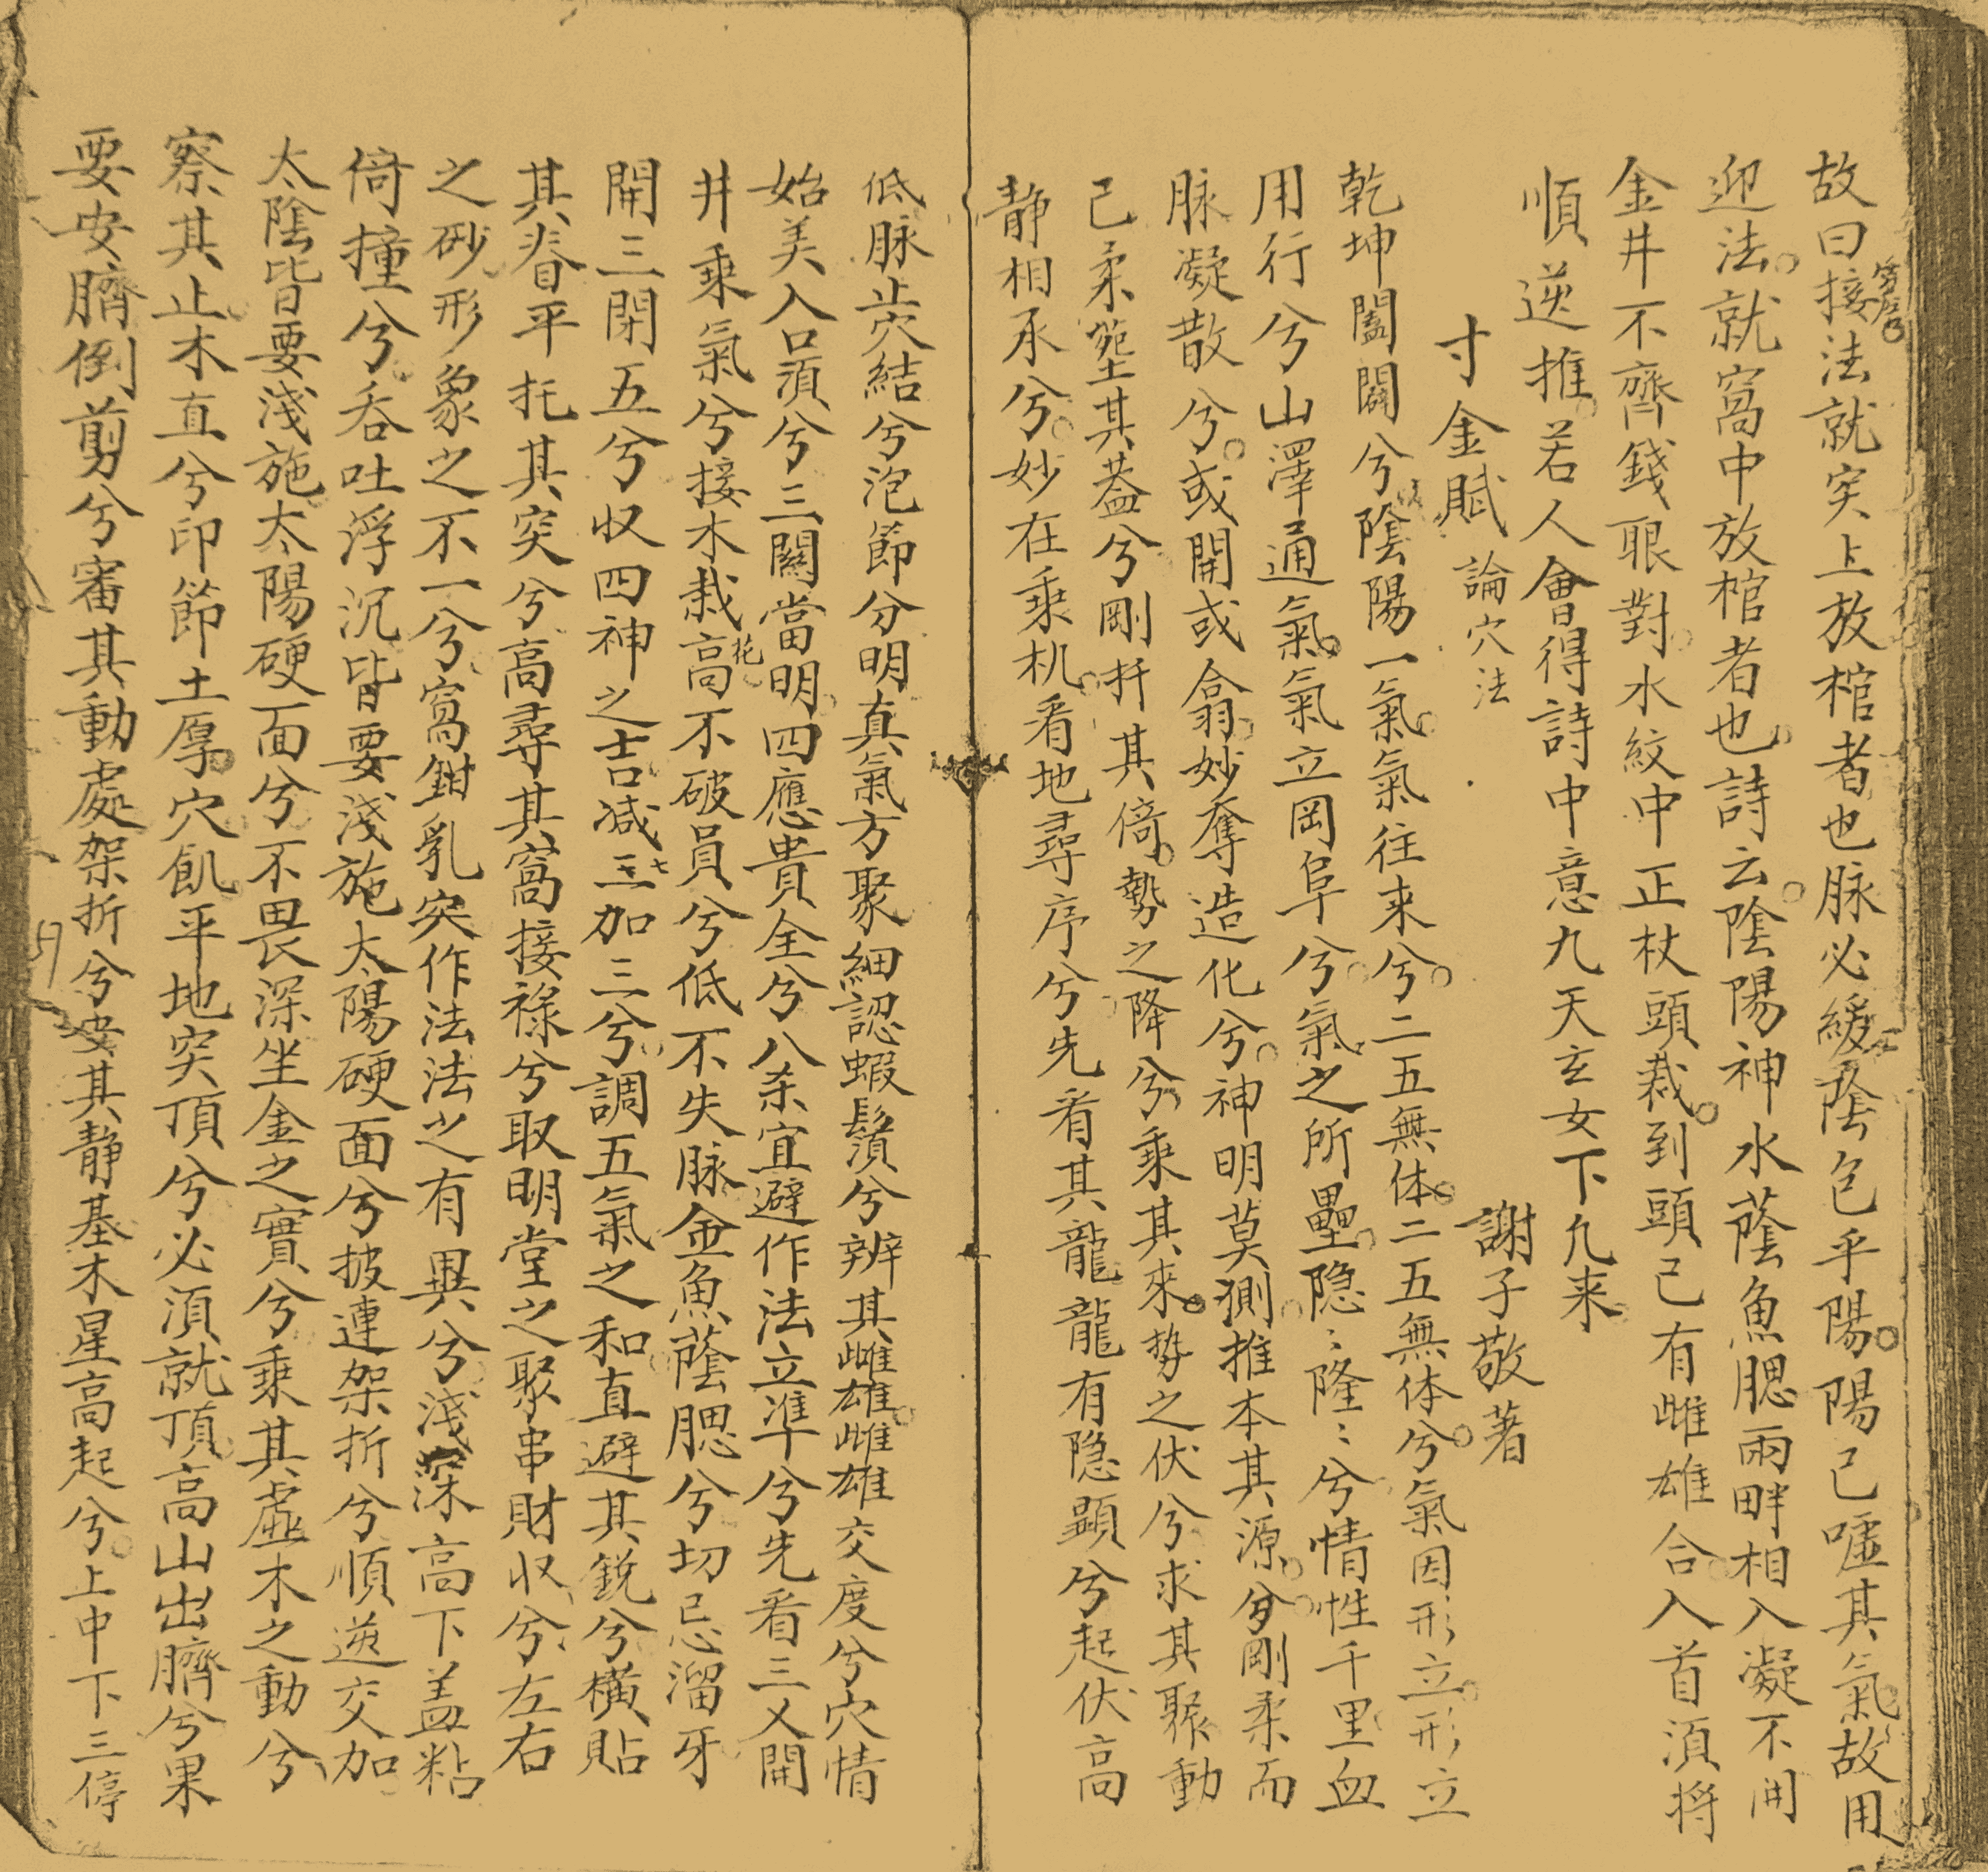 故曰接法就突上放棺者也脉必緩陰包乎陽陽已噓其氣故用
迎法就窩中放棺者也詩云陰陽神水蔭魚腮兩畔相入凝不開
金井不齊錢眼對水紋中正杖頭裁到頭已有雌雄合入首須將
順逆推若人會得詩中意九天玄女下凢来
寸金賦 論穴法 謝子敬著
乾坤闔闢兮陰陽一氣氣往来兮二五無体二五無体兮氣因形立形立
用行兮山澤通氣氣立岡阜兮氣之所壘隐〻隆〻兮情性千里血
脉凝散兮或開或翕妙奪造化兮神明莫測推本其源兮剛柔而
已柔塟其葢兮剛扦其倚勢之降兮乘其來势之伏兮求其聚動
静相承兮妙在乗机看地尋序兮先看其龍龍有隐顕兮起伏高
低脉止穴結兮泡節分明真氣方聚細認蝦鬚兮辨其雌雄雌雄交度兮穴情
始美入口須兮三關當明四應貴全兮八杀宜避作法立準兮先看三乂開
井乗氣兮接木栽花高不破員兮低不失脉金魚蔭腮兮切忌溜牙
開三閉五兮収四神之吉减七加三兮調五氣之和直避其銳兮横貼
其脊平托其突兮高尋其窩接祿兮取明堂之聚串財収兮左右
之砂形象之不一兮窩鉗乳突作法法之有異兮淺深高下盖粘
倚撞兮吞吐浮沉皆要淺施太陽硬面兮披連架折兮順逆交加
太陰皆要淺施太陽硬面兮不畏深坐金之實兮乗其虛木之動兮
察其止木直兮印節土厚穴飢平地突頂兮必須就頂高山出臍兮果
要安臍倒剪兮審其動處架折兮安其静基木星高起兮上中下三停